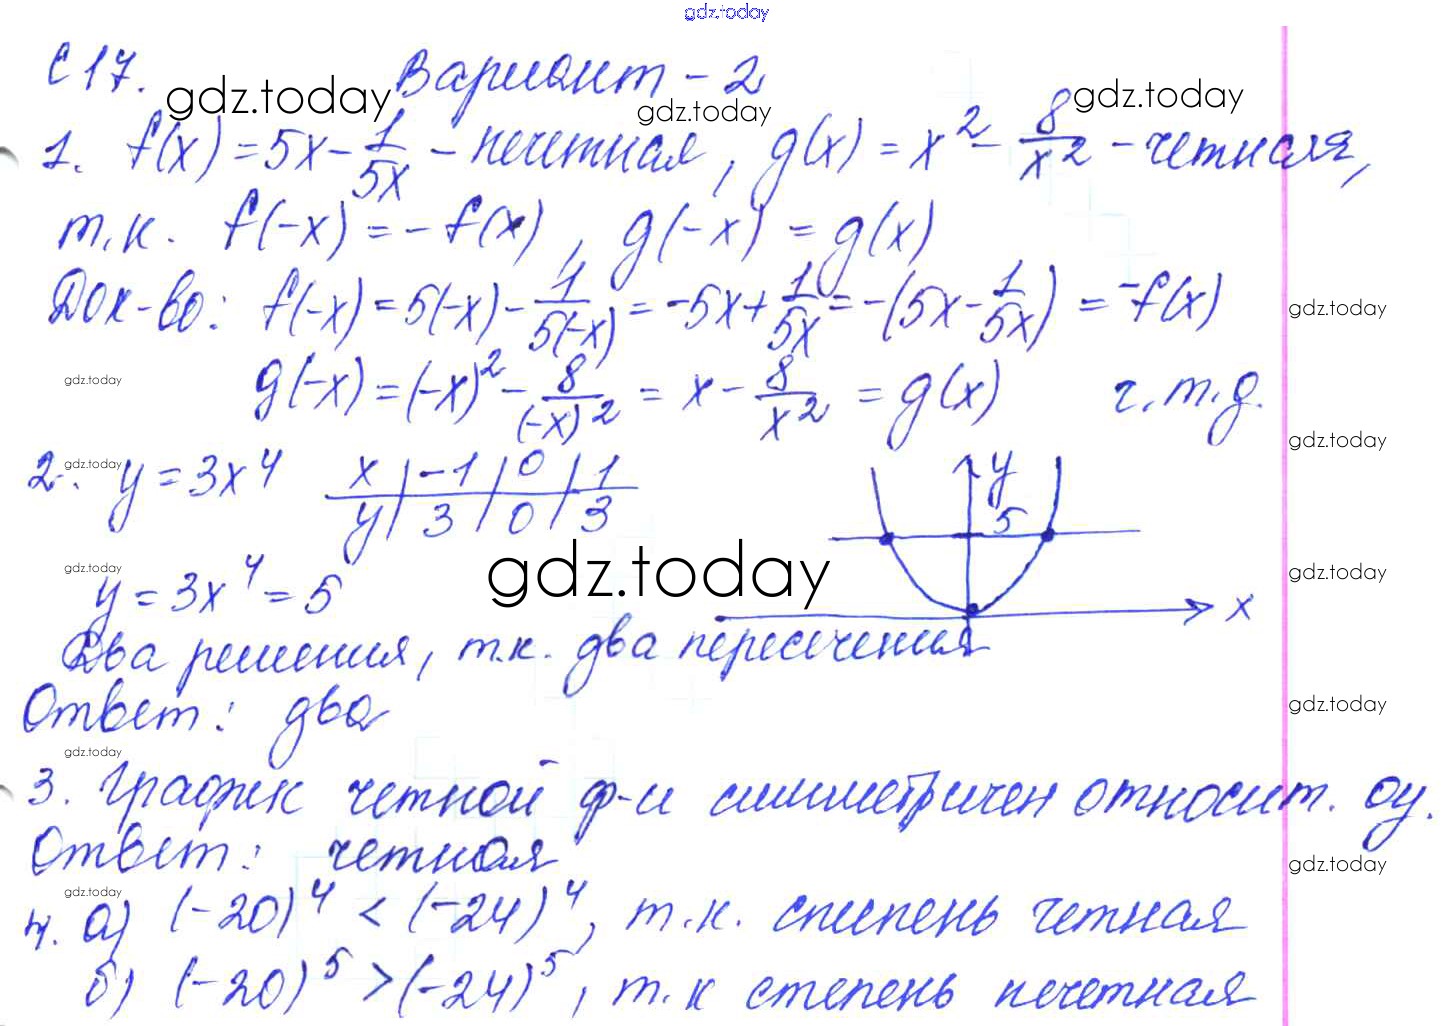 gdz.today
С 17. Вариант - 2
gdz.today gdz.today gdz.today
1. f(x) = 5x - 1/5x - нечетная, g(x) = x² - 8/x² - четная,
т.к. f(-x) = - f(x), g(-x) = g(x)
Док-во: f(-x) = 5(-x) - 1/5(-x) = -5x + 1/5x = -(5x - 1/5x) = -f(x)
gdz.today
g(-x) = (-x)² - 8/(-x)² = x - 8/x² = g(x) ч.т.д.
gdz.today
gdz.today
2. y = 3x⁴ x | -1 | 0 | 1 y
gdz.today
y | 3 | 0 | 3 5
gdz.today
gdz.today gdz.today
y = 3x⁴ = 5 x
Два решения, т.к. два пересечения
Ответ: два
gdz.today
gdz.today
3. График четной ф-и симметричен относит. оу.
Ответ: четная
gdz.today
gdz.today
4. а) (-20)⁴ < (-24)⁴, т.к. степень четная
б) (-20)⁵ > (-24)⁵, т.к степень нечетная